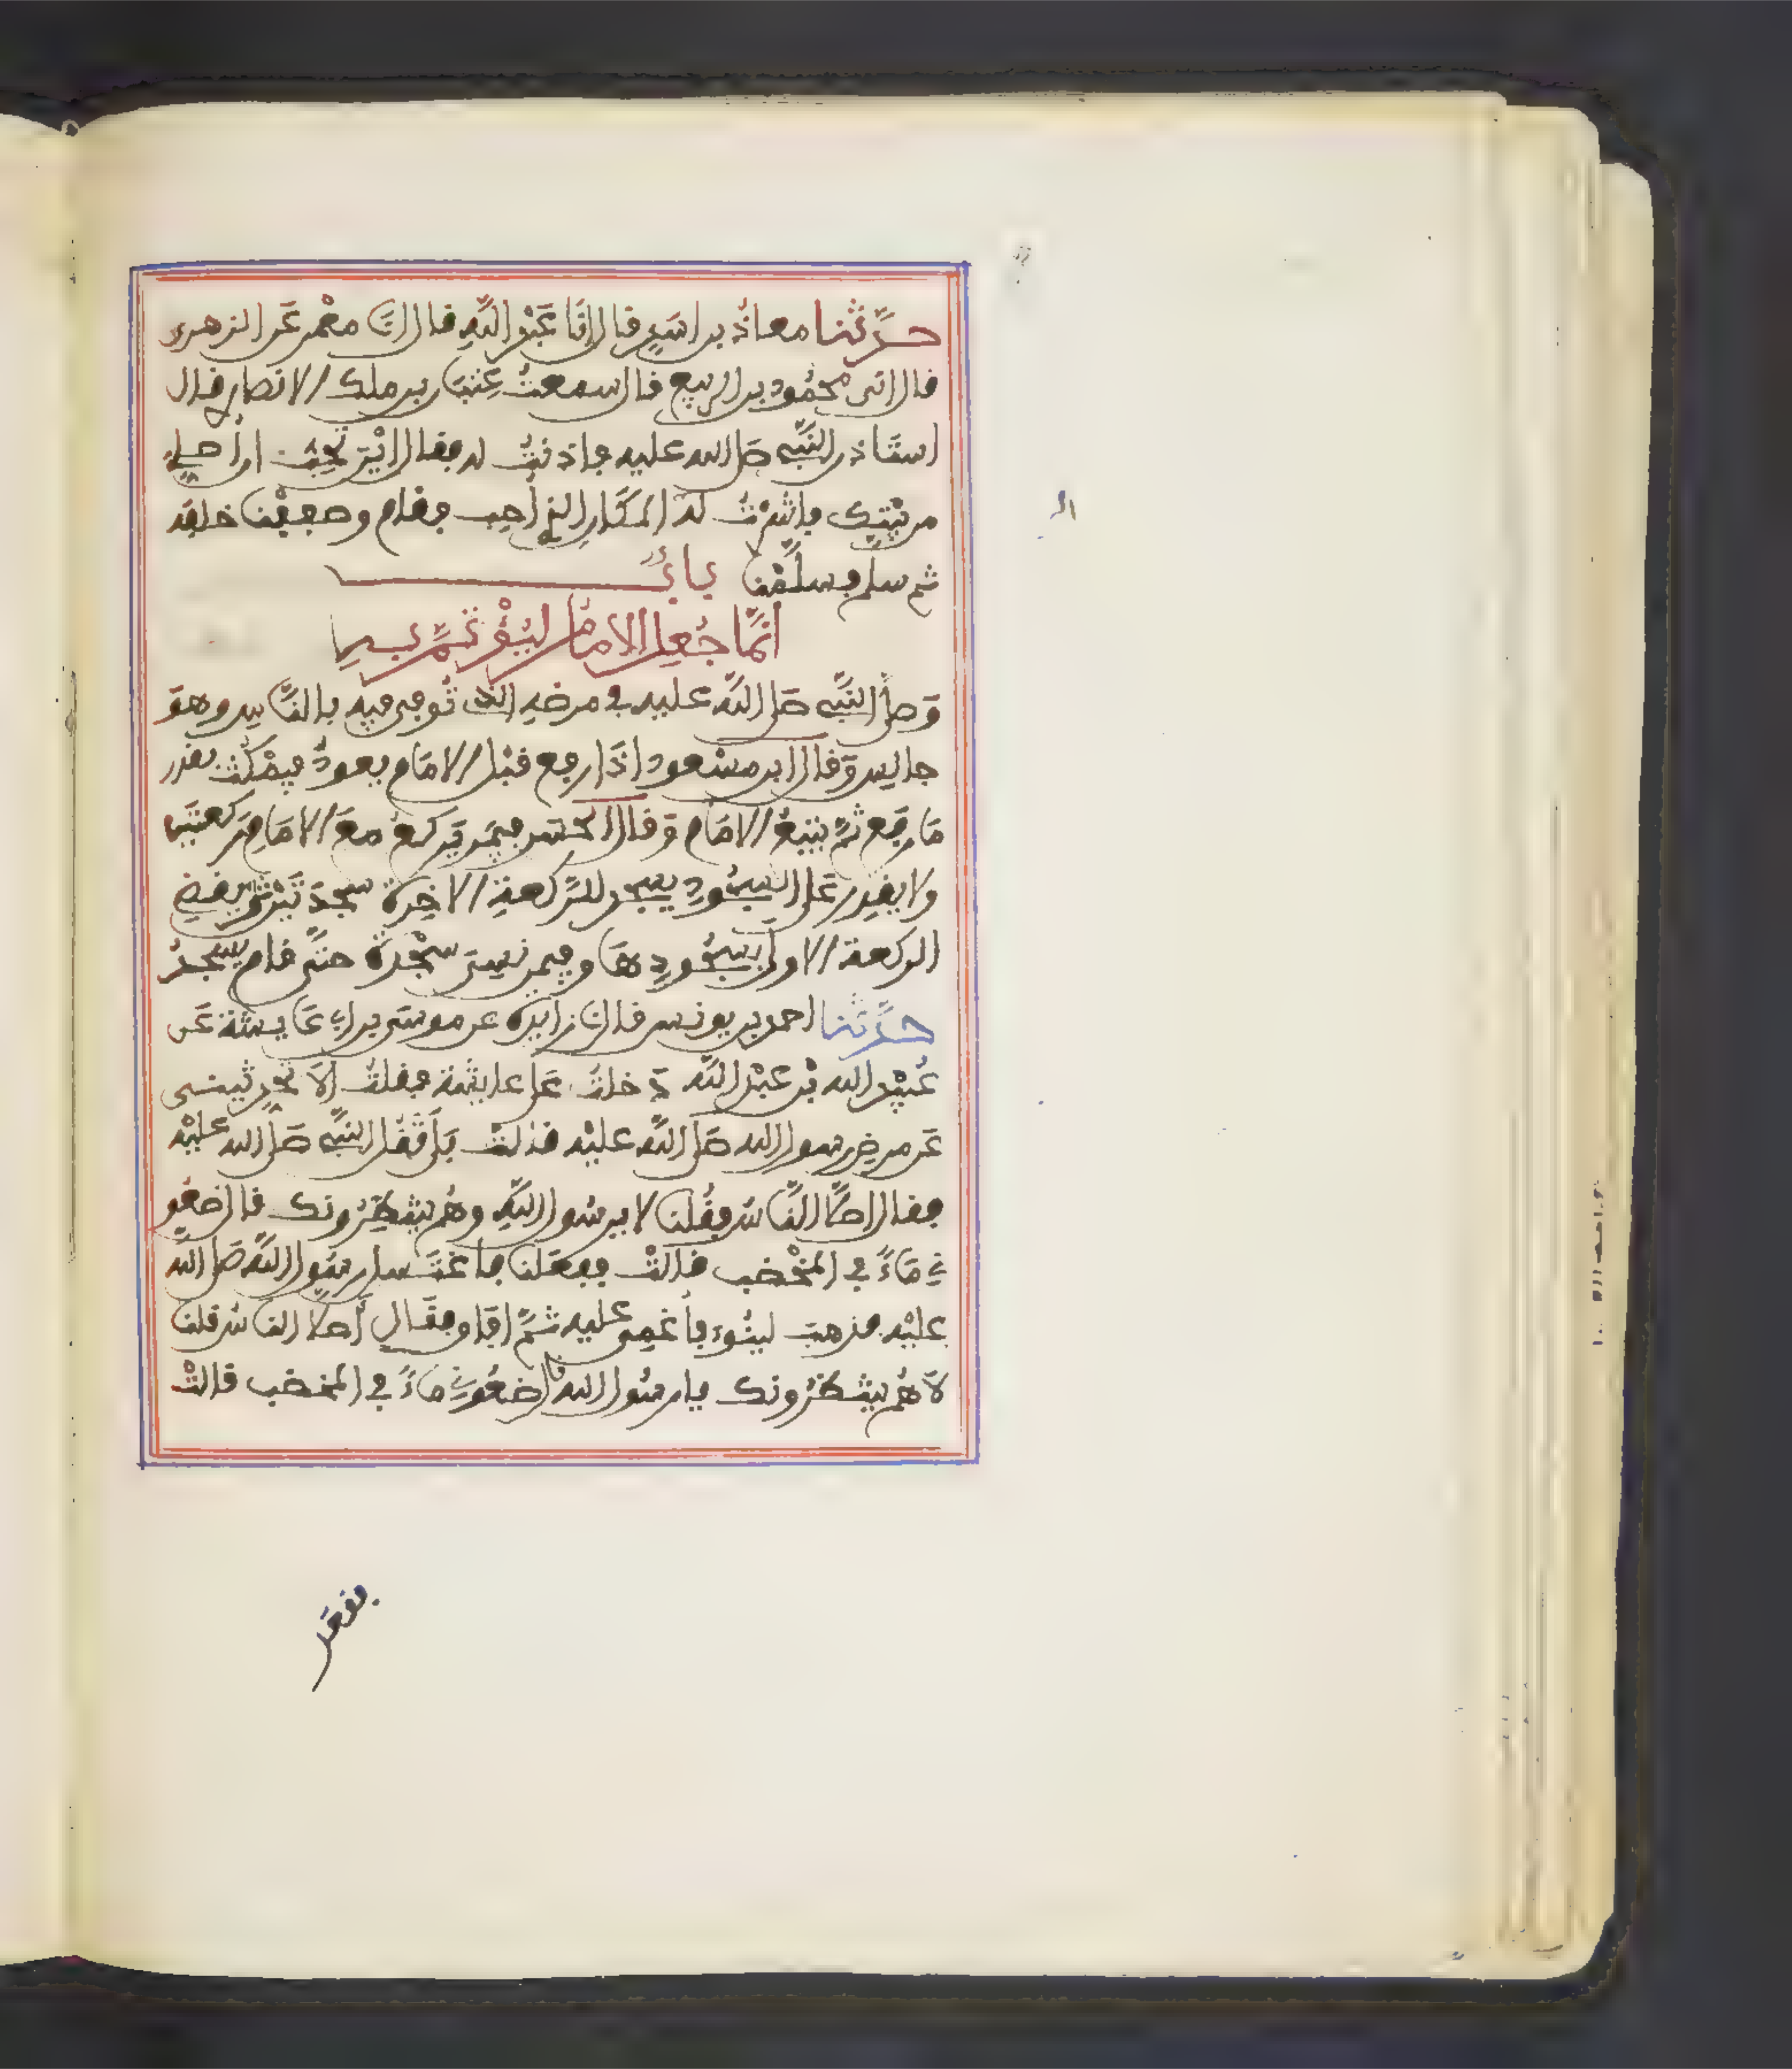 حدثنا معاذ بن اسد قال انا عبد الله قال انا معمر عن الزهري
قال اني محمود بن الربيع قال سمعت عتبان بن ملك الانصاري قال
استاذن النبي صلى الله عليه فاذنت له فقال اين تحب ان اصلي
من بيتك فاشرت له المكان الذي احب فقام وصففنا خلفه
ثم سلم وسلمنا باب
انما جعل الامام ليؤتم به
وصلى النبي صلى الله عليه في مرضه الذي توفي فيه بالناس وهو
جالس وقال ابن مسعود اذا رفع قبل الامام يعود فيمكث بقدر
ما رفع ثم يتبع الامام وقال الحسن فيمن يركع مع الامام ركعتين
ولا يقدر على السجود يسجد للركعة الاخرة سجدتين ثم يقضي
الركعة الاولى بسجودها وفيمن نسي سجدة حتى قام يسجد
حدثنا احمد بن يونس قال انا زايدة عن موسى بن ابي عايشة عن
عبيد الله بن عبد الله دخلت على عايشة فقلت الا تحدثيني
عن مرض رسول الله صلى الله عليه قالت بلى ثقل النبي صلى الله عليه
فقال اصلى الناس فقلنا لا يرسول الله وهم ينتظرونك قال ضعو
ني ماء في المخضب قالت ففعلنا فاغتسل رسول الله صلى الله
عليه فذهب لينوء فاغمي عليه ثم افاق فقال اصلى الناس قلنا
لا هم ينتظرونك يا رسول الله قال ضعوني ماء في المخضب قالت
فقعد